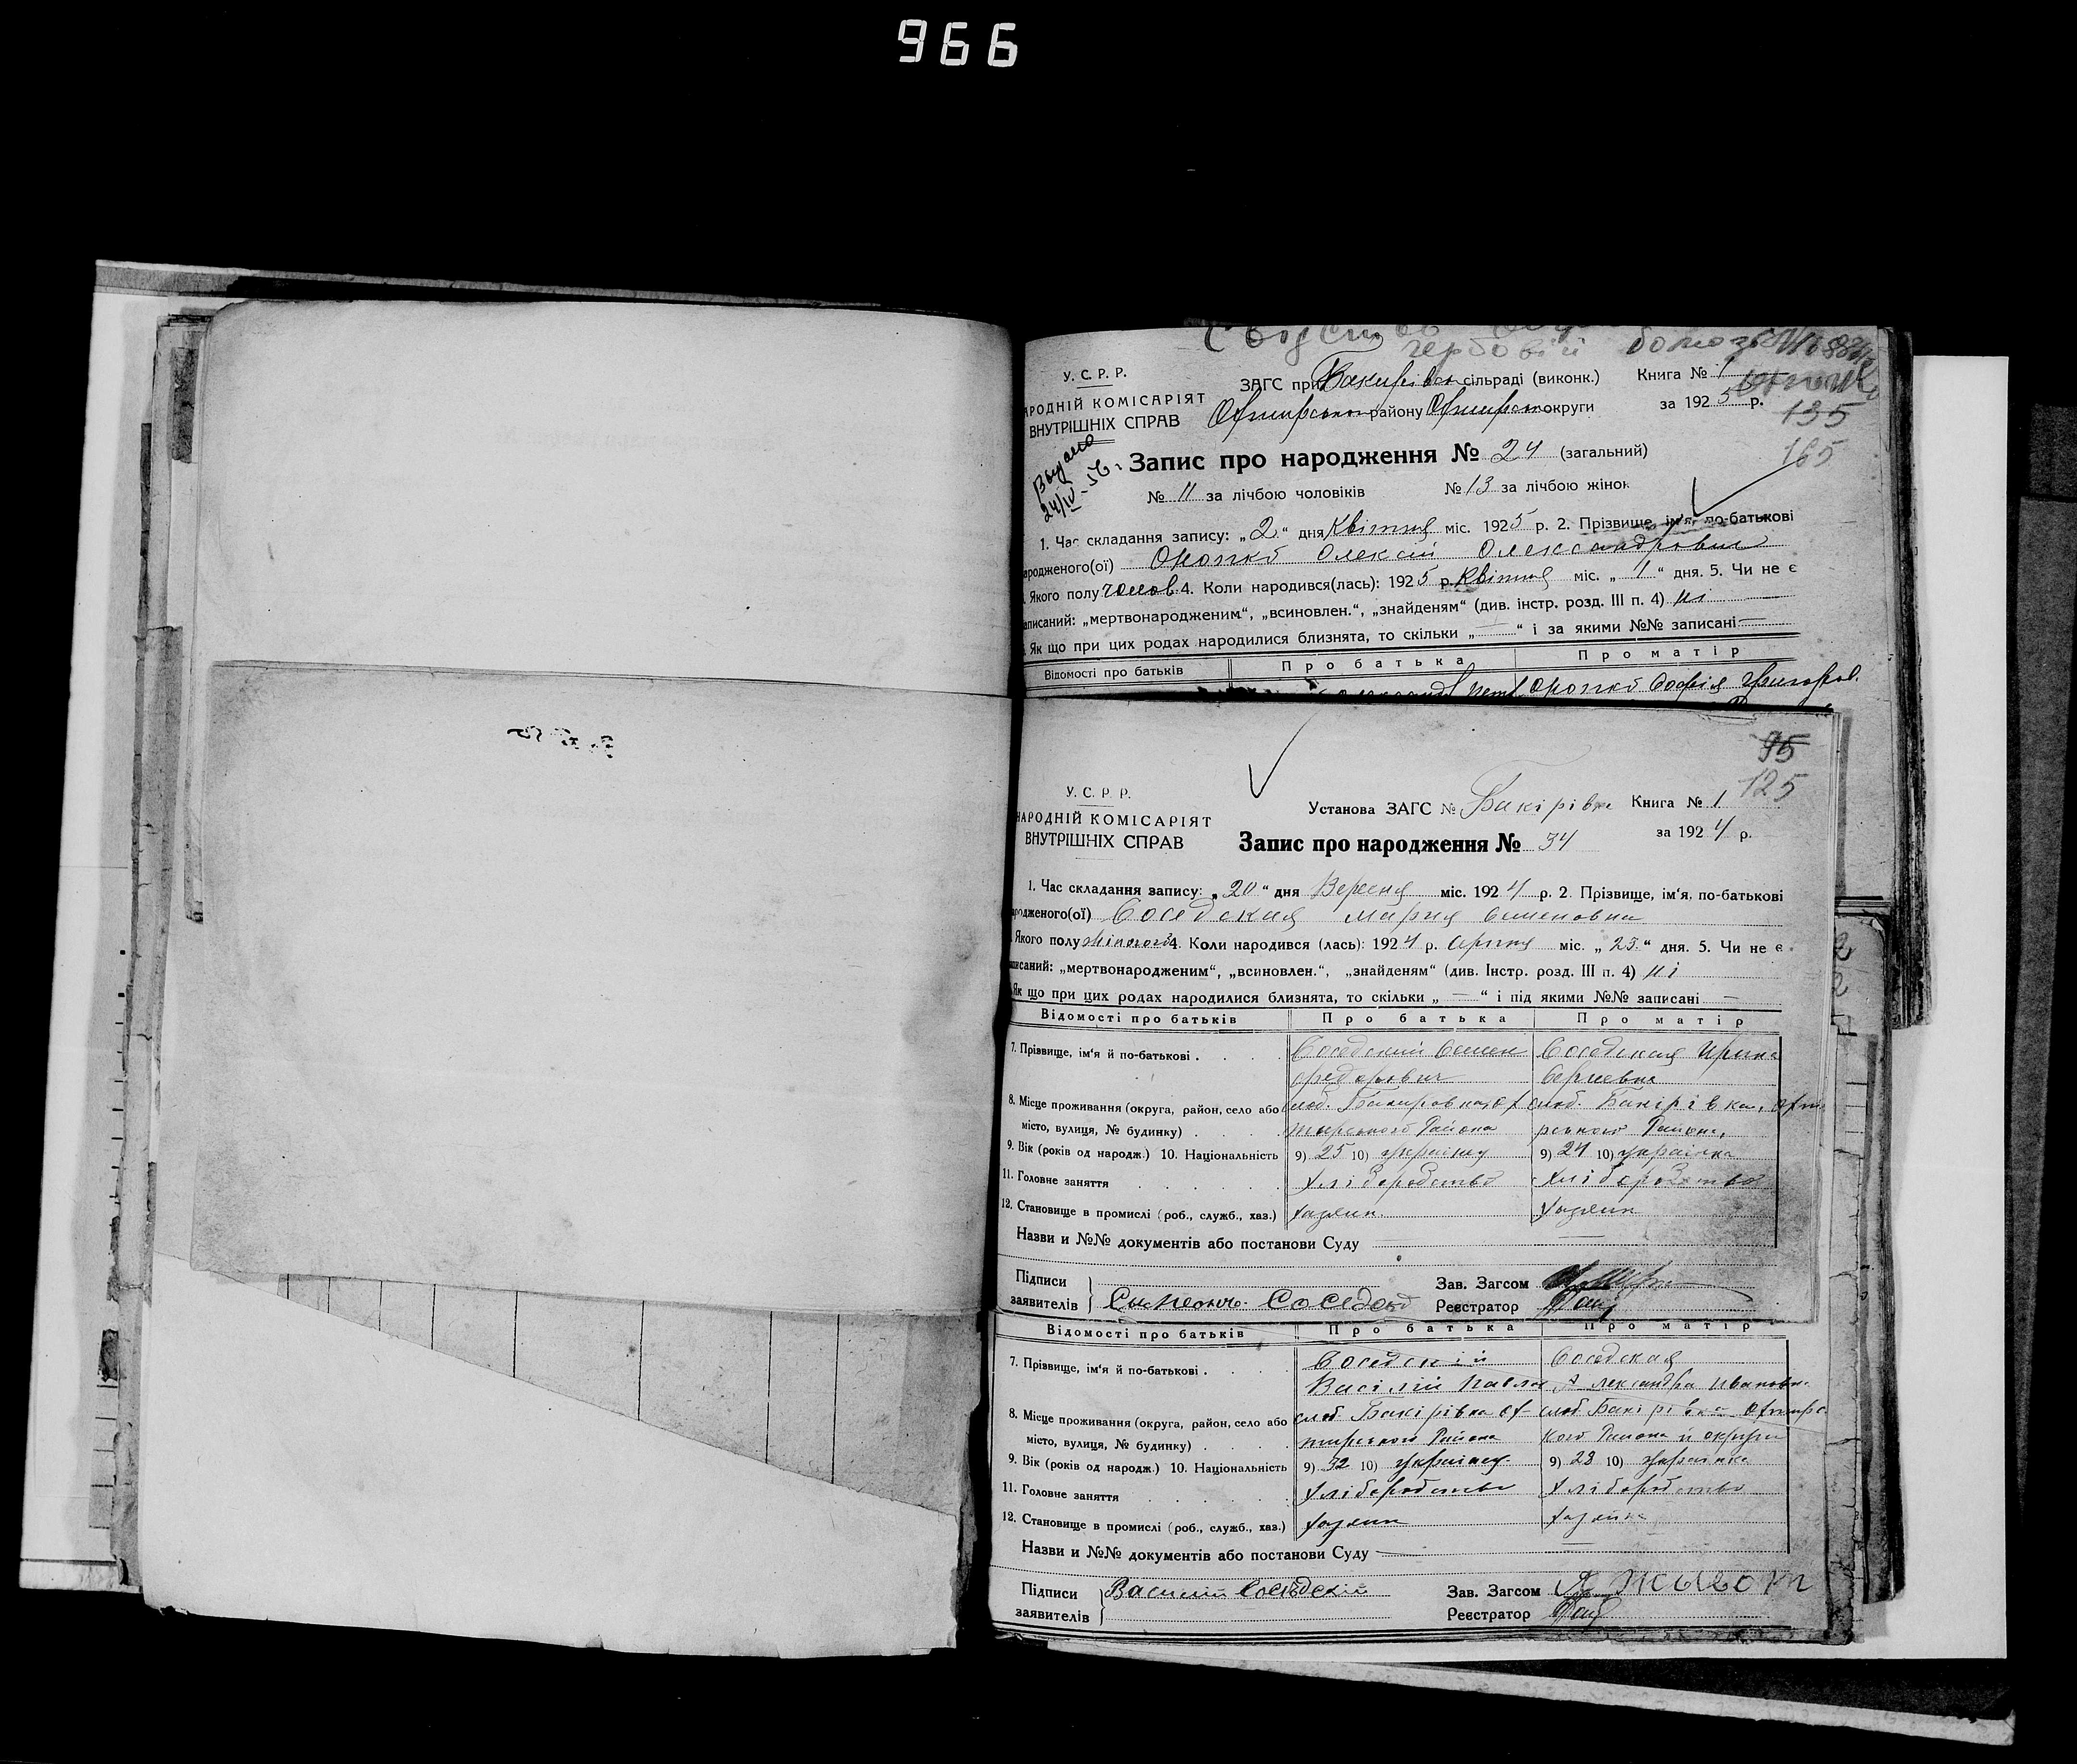 966
гербовій
У. С. Р. Р.
НАРОДНІЙ КОМІСАРІЯТ
ВНУТРІШНІХ СПРАВ
ЗАГС при Бакирівск сільраді (виконк.)
Охтирського району Охтирсько округи
Книга № 1
за 1925 р.
135
165
Видано
24/IV-56.
Запис про народження № 24 (загальний)
№ 11 за лічбою чоловіків № 13 за лічбою жінок
1. Час складання запису: „2“ дня Квітня міс. 1925 р. 2. Прізвище, ім'я, по-батькові
ародженого(ої) Онопко Олексій Олександрович
Якого полу чолов. 4. Коли народився(лась): 1925 р. Квітня міс. „1“ дня. 5. Чи не є
аписаний: „мертвонародженим“, „всиновлен.“, „знайденям“ (див. інстр. розд. III п. 4) ні
Як що при цих родах народилися близнята, то скільки „—“ і за якими №№ записані —
Відомості про батьків Про батька Про матір
Онопко Софія Григоров.
95
125
У. С. Р. Р.
НАРОДНІЙ КОМІСАРІЯТ
ВНУТРІШНІХ СПРАВ
Установа ЗАГС № Бакірівка Книга № 1
за 1924 р.
Запис про народження № 34
1. Час складання запису: „20“ дня Вересня міс. 1924 р. 2. Прізвище, ім'я, по-батькові
родженого(ої) Соседская Мария Семеновна
Якого полу жіночої 4. Коли народився (лась): 1924 р. Серпня міс. „25“ дня. 5. Чи не є
писаний: „мертвонародженим“, „всиновлен.“, „знайденям“ (див. Інстр. розд. III п. 4) ні
Як що при цих родах народилися близнята, то скільки „—“ і під якими №№ записані —
Відомості про батьків Про батька Про матір
7. Прізвище, ім'я й по-батькові . . . . Соседский Семен Соседская Ирина
Федорович Сергеевна
8. Місце проживання (округа, район, село або слоб. Бакировка Ох слоб. Бакірівка, Охти
місто, вулиця, № будинку) . . . . тирського Района рського Района,
9. Вік (років од народж.) 10. Національність 9) 25 10) українец 9) 24 10) українка
11. Головне заняття . . . . . . хліборобство хліборобство
12. Становище в промислі (роб., служб., хаз.) хазяин хазяин
Назви и №№ документів або постанови Суду —
Підписи
заявителів
Соседск
Зав. Загсом
Реєстратор
Відомості про батьків Про батька Про матір
7. Прізвище, ім'я й по-батькові . . . . Соседский Соседская
Васілий Павлов Александра Ивановна
8. Місце проживання (округа, район, село або слоб Бакірівка Ох слоб Бакірівка Охтирс
місто, вулиця, № будинку) . . . . тирського Района кого Района и округи
9. Вік (років од народж.) 10. Національність 9) 32 10) українец 9) 28 10) українка
11. Головне заняття . . . . . хліборобство хліборобство
12. Становище в промислі (роб., служб., хаз.) хазяин хазяйка
Назви и №№ документів або постанови Суду —
Підписи
заявителів
Василий Соседский
Зав. Загсом
Реєстратор